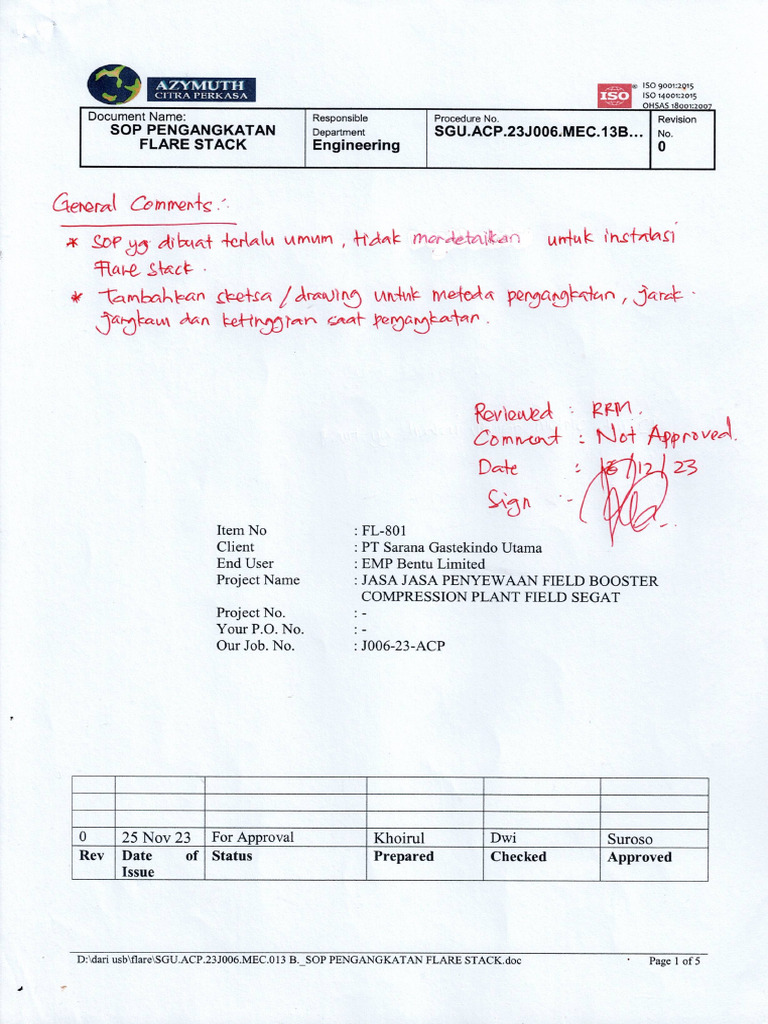 AZYMUTH
CITRA PERKASA
ISO
ISO 9001:2015
ISO 14001:2015
OHSAS 18001:2007
Document Name:
SOP PENGANGKATAN
FLARE STACK
Responsible
Department
Engineering
Procedure No.
SGU.ACP.23J006.MEC.13B...
Revision
No.
0
General Comments :-
* SOP yg dibuat terlalu umum, tidak mendetailkan untuk instalasi
Flare Stack.
* Tambahkan sketsa / drawing untuk metoda pengangkatan, jarak
jangkau dan ketinggian saat pengangkatan.
Reviewed : RRM.
Comment : Not Approved.
Date : /12/23
Sign :-
Item No : FL-801
Client : PT Sarana Gastekindo Utama
End User : EMP Bentu Limited
Project Name : JASA JASA PENYEWAAN FIELD BOOSTER
COMPRESSION PLANT FIELD SEGAT
Project No. : -
Your P.O. No. : -
Our Job. No. : J006-23-ACP
0 25 Nov 23 For Approval Khoirul Dwi Suroso
Rev Date of Status Prepared Checked Approved
Issue
D:\dari usb\flare\SGU.ACP.23J006.MEC.013 B._SOP PENGANGKATAN FLARE STACK.doc Page 1 of 5